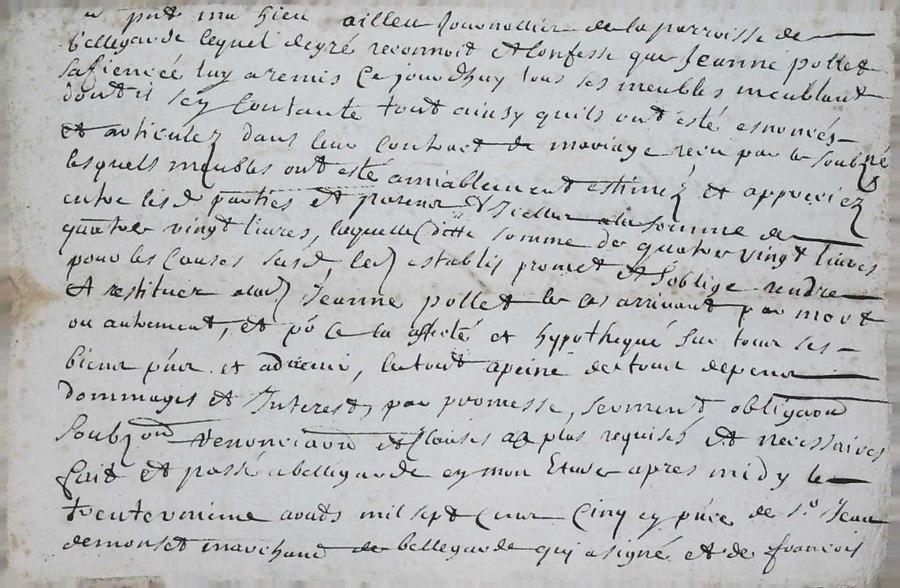 ailleu Journallier de la parroisse de
bellegarde lequel degré reconnoit et Confesse que Jeanne pollet
safiencée luy a remis Ce jourdhuy tous ses meubles meublant
dont il sey Contante tout ainsy quils ont esté esnoncés
et articulez dans leur Contract de mariage recu par le soubzné
lesquels meubles ont esté amiablement estimez et appreciez
entre lesd parties et parens d'Icelles a la somme de
quatre vingt livres, laquelle ditte somme de quatre vingt livres
pour les Causes susd led establis promet et soblige rendre
et restituer a lad Jeanne pollet le cas arrivant par mort
ou autrement, et po Ce la affecté et hypothequé sur tous ses
biens pñs et advenir, le tout apeine de tous depens
dommages et Interests, par promesse, serment obligaon
soubzon renonciaon et Clauses a ce plus requises et necessaires
fait et passé a bellegarde en mon Etude apres midy le
trente unieme aouts mil sept Cent Cinq en pñce de sr Jean
demonset marchand de bellegarde qui a signé et de francois